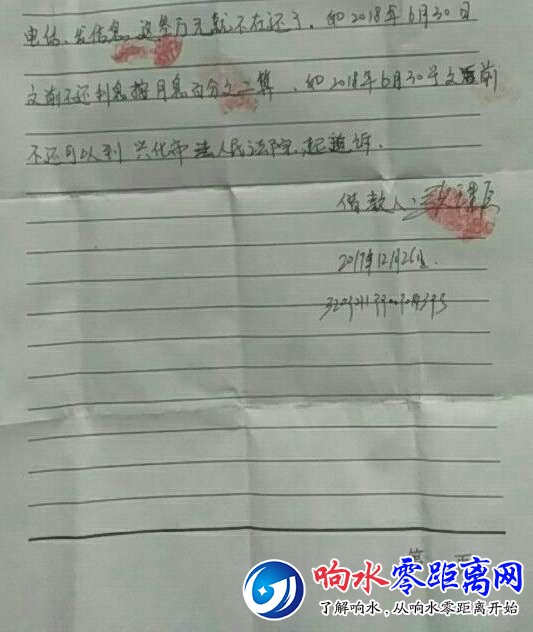 电话、发信息,这叁万元就不在还了,如2018年6月30日
之前不还利息按月息百分之二算、如2018年6月30号之前
不还可以到兴化市人民法院起诉.
借款人:
2017年12月26
第 页
响水零距离网
了解响水,从响水零距离开始